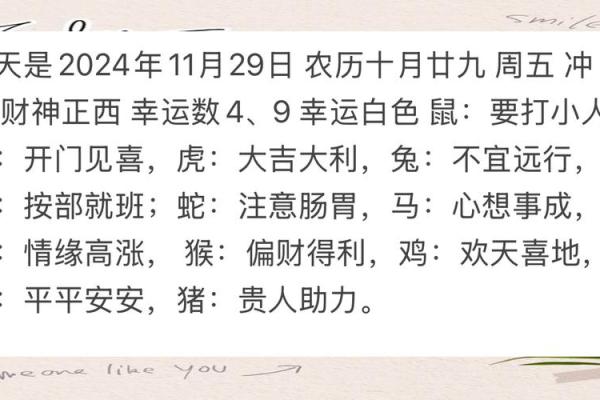 smile
天是2024年11月29日 农历十月廿九 周五 冲
财神正西 幸运数4、9 幸运白色 鼠：要打小人
：开门见喜，虎：大吉大利，兔：不宜远行，
：按部就班；蛇：注意肠胃，马：心想事成，
：情缘高涨， 猴：偏财得利，鸡：欢天喜地，
：平平安安，猪：贵人助力。
like you